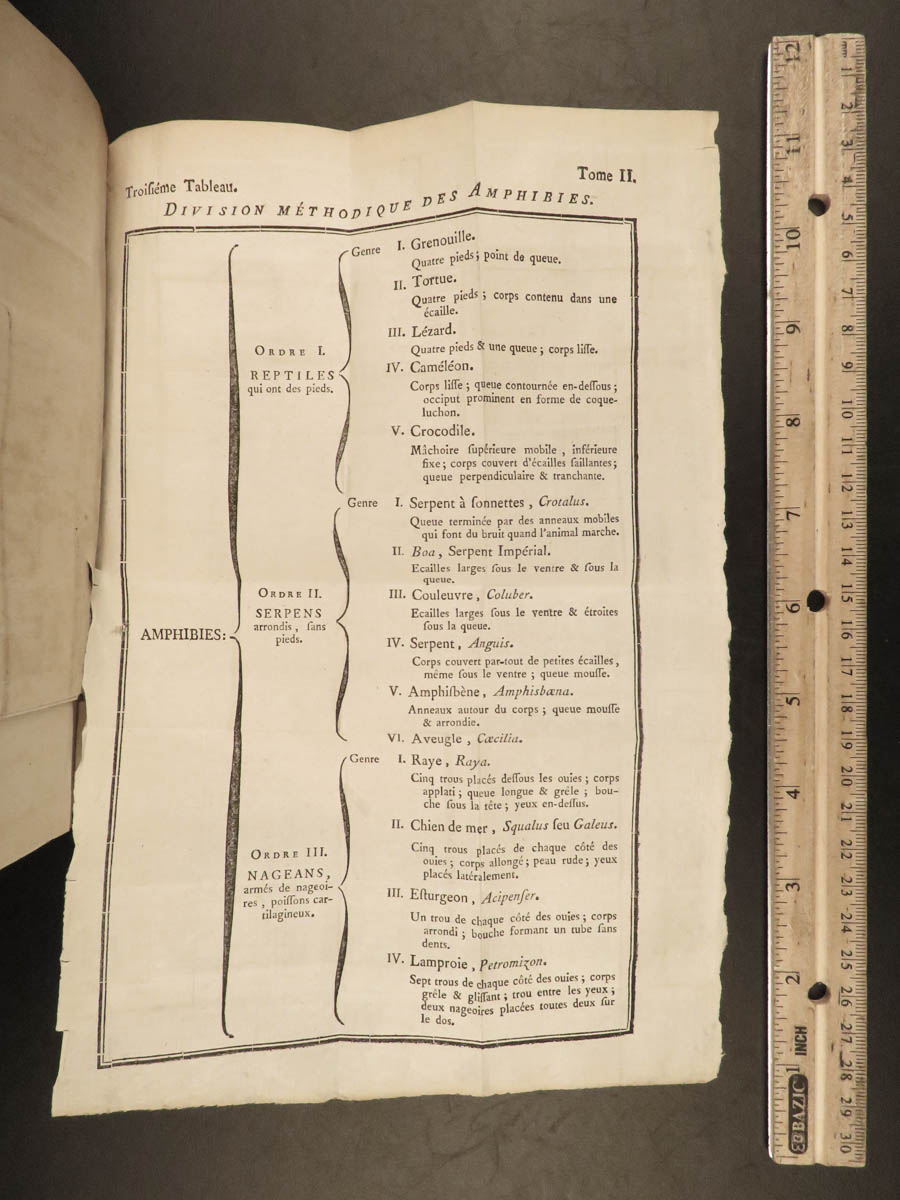 Troisiéme Tableau.
Tome II.
DIVISION MÉTHODIQUE DES AMPHIBIES.
AMPHIBIES:
ORDRE I.
REPTILES
qui ont des pieds.
Genre I. Grenouille.
Quatre pieds; point de queue.
II. Tortue.
Quatre pieds; corps contenu dans une
écaille.
III. Lézard.
Quatre pieds & une queue; corps lisse.
IV. Caméléon.
Corps lisse; queue contournée en-dessous;
occiput prominent en forme de coque-
luchon.
V. Crocodile.
Mâchoire supérieure mobile, inférieure
fixe; corps couvert d'écailles saillantes;
queue perpendiculaire & tranchante.
ORDRE II.
SERPENS
arrondis, sans
pieds.
Genre I. Serpent à sonnettes, Crotalus.
Queue terminée par des anneaux mobiles
qui font du bruit quand l'animal marche.
II. Boa, Serpent Impérial.
Ecailles larges sous le ventre & sous la
queue.
III. Couleuvre, Coluber.
Ecailles larges sous le ventre & étroites
sous la queue.
IV. Serpent, Anguis.
Corps couvert par-tout de petites écailles,
même sous le ventre; queue mousse.
V. Amphisbène, Amphisbœna.
Anneaux autour du corps; queue mousse
& arrondie.
VI. Aveugle, Cœcilia.
ORDRE III.
NAGEANS,
armés de nageoi-
res, poissons car-
tilagineux.
Genre I. Raye, Raya.
Cinq trous placés dessous les ouies; corps
applati; queue longue & grêle; bou-
che sous la tête; yeux en-dessus.
II. Chien de mer, Squalus seu Galeus.
Cinq trous placés de chaque côté des
ouies; corps allongé; peau rude; yeux
placés latéralement.
III. Esturgeon, Acipenser.
Un trou de chaque côté des ouies; corps
arrondi; bouche formant un tube sans
dents.
IV. Lamproie, Petromizon.
Sept trous de chaque côté des ouies; corps
grêle & glissant; trou entre les yeux;
deux nageoires placées toutes deux sur
le dos.
12 11 10 9 8 7 6 5 4 3 2 1 INCH
BAZIC
mm 1 2 3 4 5 6 7 8 9 10 11 12 13 14 15 16 17 18 19 20 21 22 23 24 25 26 27 28 29 30